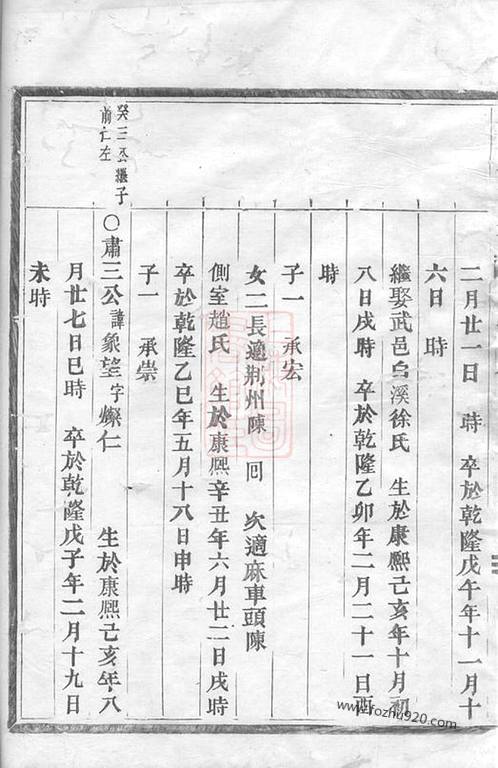 二月廿一日　時　卒於乾隆戊午年十一月十
六日　時
繼娶武邑白溪徐氏　生於康熙己亥年十月初
八日戌時　卒於乾隆乙卯年二月二十一日酉
時
子一　承宏
女二長適荆州陳　囘　次適麻車頭陳
側室趙氏　生於康熙辛丑年六月廿二日戌時
卒於乾隆乙巳年五月十八日申時
子一　承崇
癸三公繼子
前仁左
○肅三公諱象望字燦仁　生於康熙己亥年八
月廿七日巳時　卒於乾隆戊子年二月十九日
未時
www.fozhu920.com